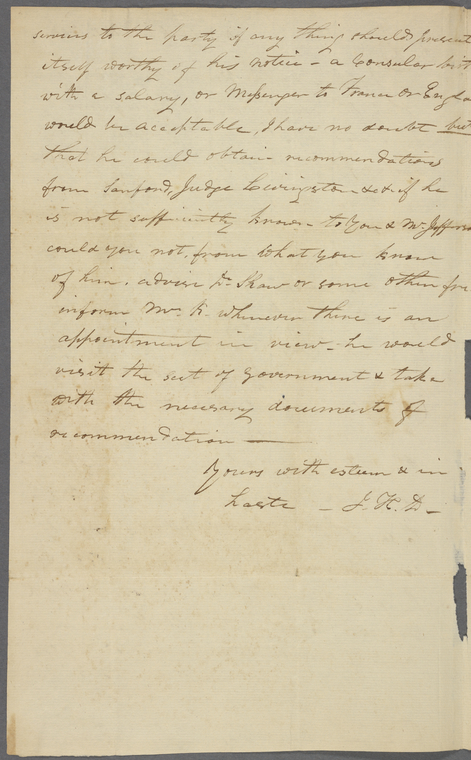 services to the party if any thing should present
itself worthy of his notice - a Consular birt
with a salary, or Messenger to France or Engla
would be acceptable, I have no doubt but
that he could obtain recommendations
from Sanford, Judge Livingston &c & if he
is not sufficiently known to You & Mr. Jefferso
could you not, from what you know
of him, advise Dr Shaw or some other fre
inform Mr. K. whenever there is an
appointment in view - he would
visit the seat of government & take
with the necessary documents of
recommendation —
Yours with esteem & in
haste - J. H. D -